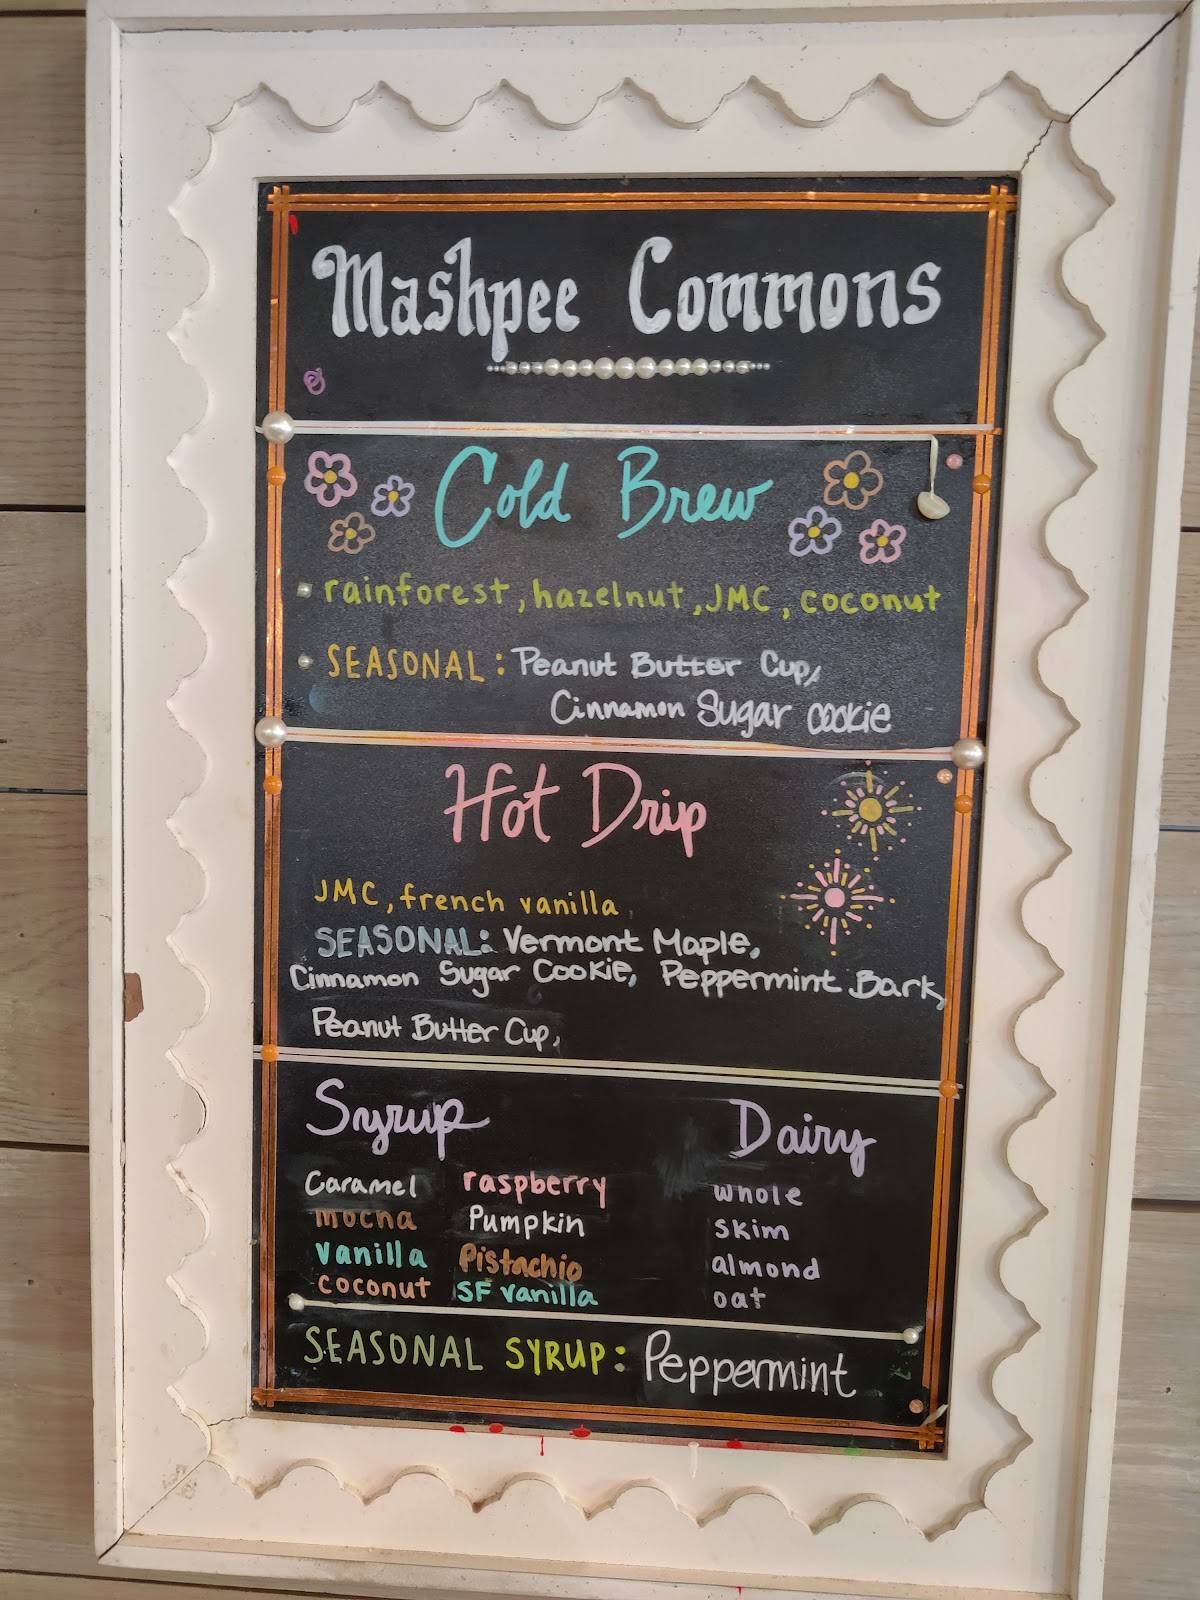 Mashpee Commons
Cold Brew
rainforest, hazelnut, JMC, coconut
SEASONAL: Peanut Butter Cup,
Cinnamon Sugar cookie
Hot Drip
JMC, french vanilla
SEASONAL: Vermont Maple,
Cinnamon Sugar Cookie, Peppermint Bark,
Peanut Butter Cup,
Syrup
Caramel raspberry
mocha Pumpkin
vanilla Pistachio
coconut SF vanilla
Dairy
whole
skim
almond
oat
SEASONAL SYRUP: Peppermint